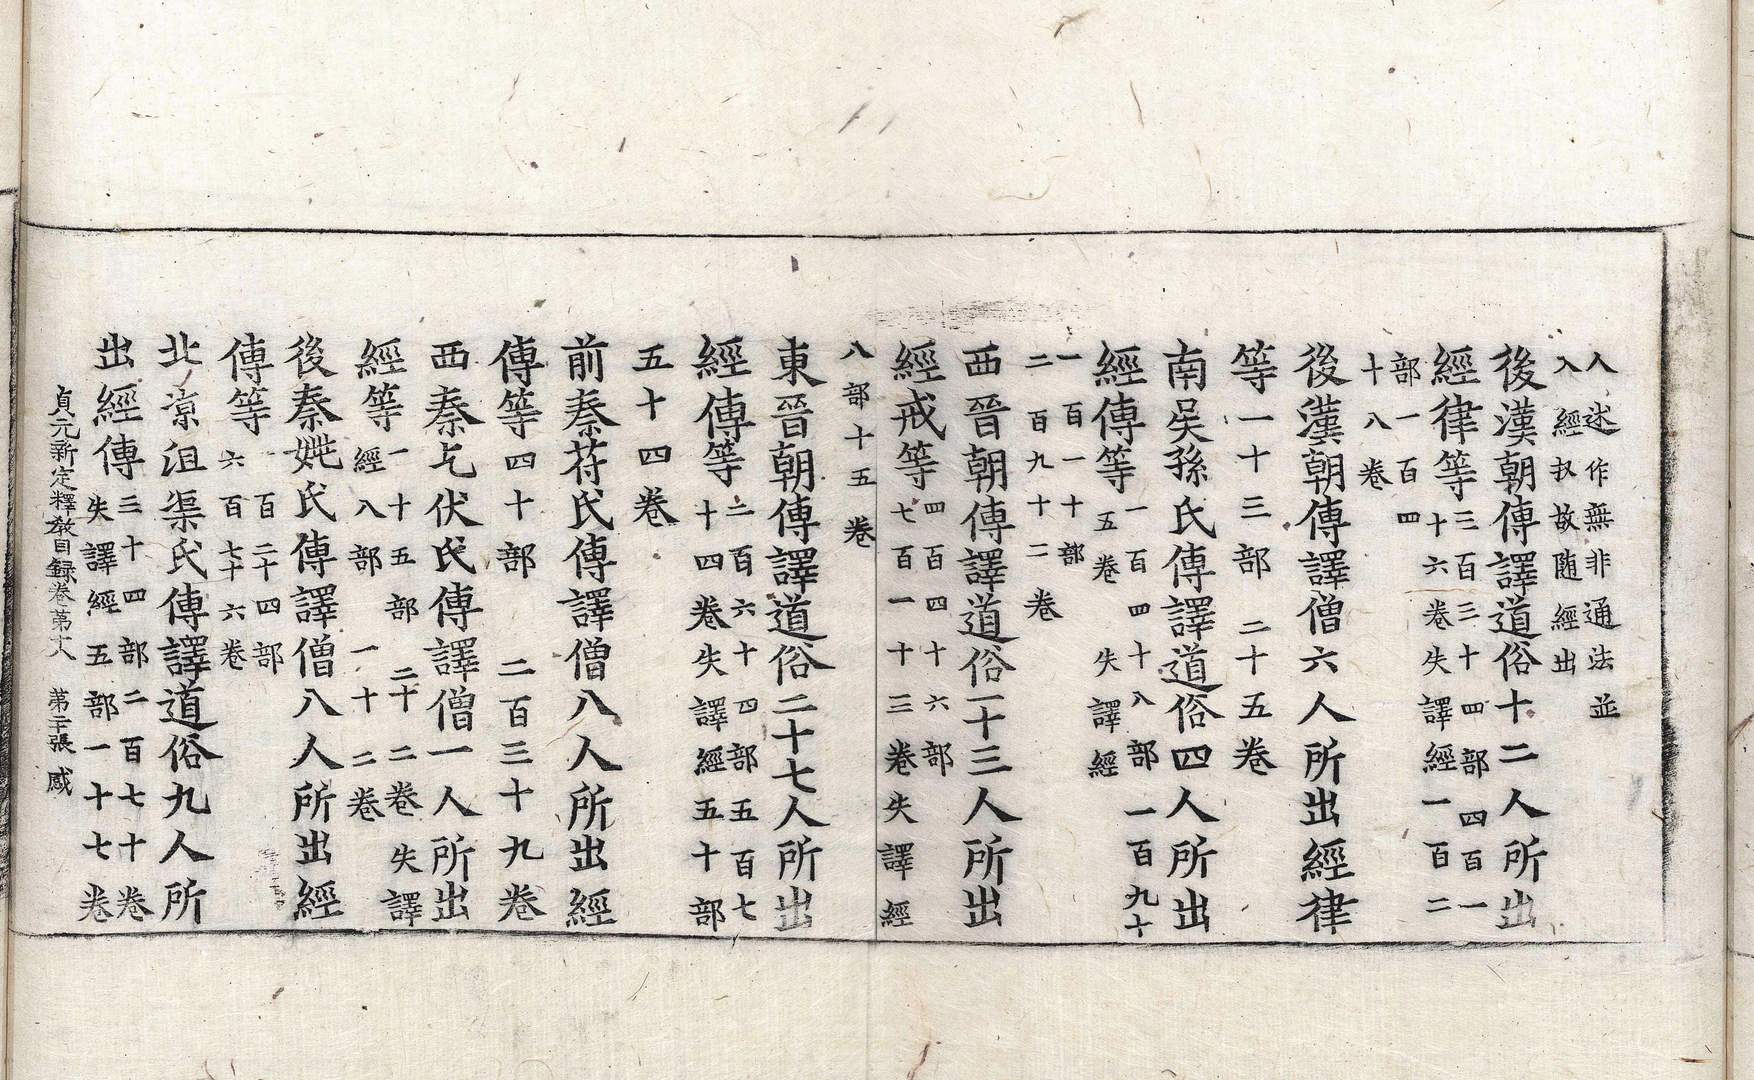 人述作無非通法並
入經収故随經出
後漢朝傳譯道俗十二人所出
經律等三百三十四部四百一
十六卷失譯經一百二
部一百四
十八卷
後漢朝傳譯僧六人所出經律
等一十三部二十五卷
南吳孫氏傳譯道俗四人所出
經傳等一百四十八部一百九十
五卷失譯經
一百一十部
二百九十二卷
西晉朝傳譯道俗一十三人所出
經戒等四百四十六部
七百一十三卷失譯經
八部十五卷
東晉朝傳譯道俗二十七人所出
經傳等二百六十四部五百七
十四卷失譯經五十部
五十四卷
前秦苻氏傳譯僧八人所出經
傳等四十部二百三十九卷
西秦乞伏氏傳譯僧一人所出
經等一十五部二十二卷失譯
經八部一十二卷
後秦姚氏傳譯僧八人所出經
傳等一百二十四部
六百七十六卷
北涼沮渠氏傳譯道俗九人所
出經傳三十四部二百七十卷
失譯經五部一十七卷
貞元新定釋教目録卷第廿八 第二十張 感